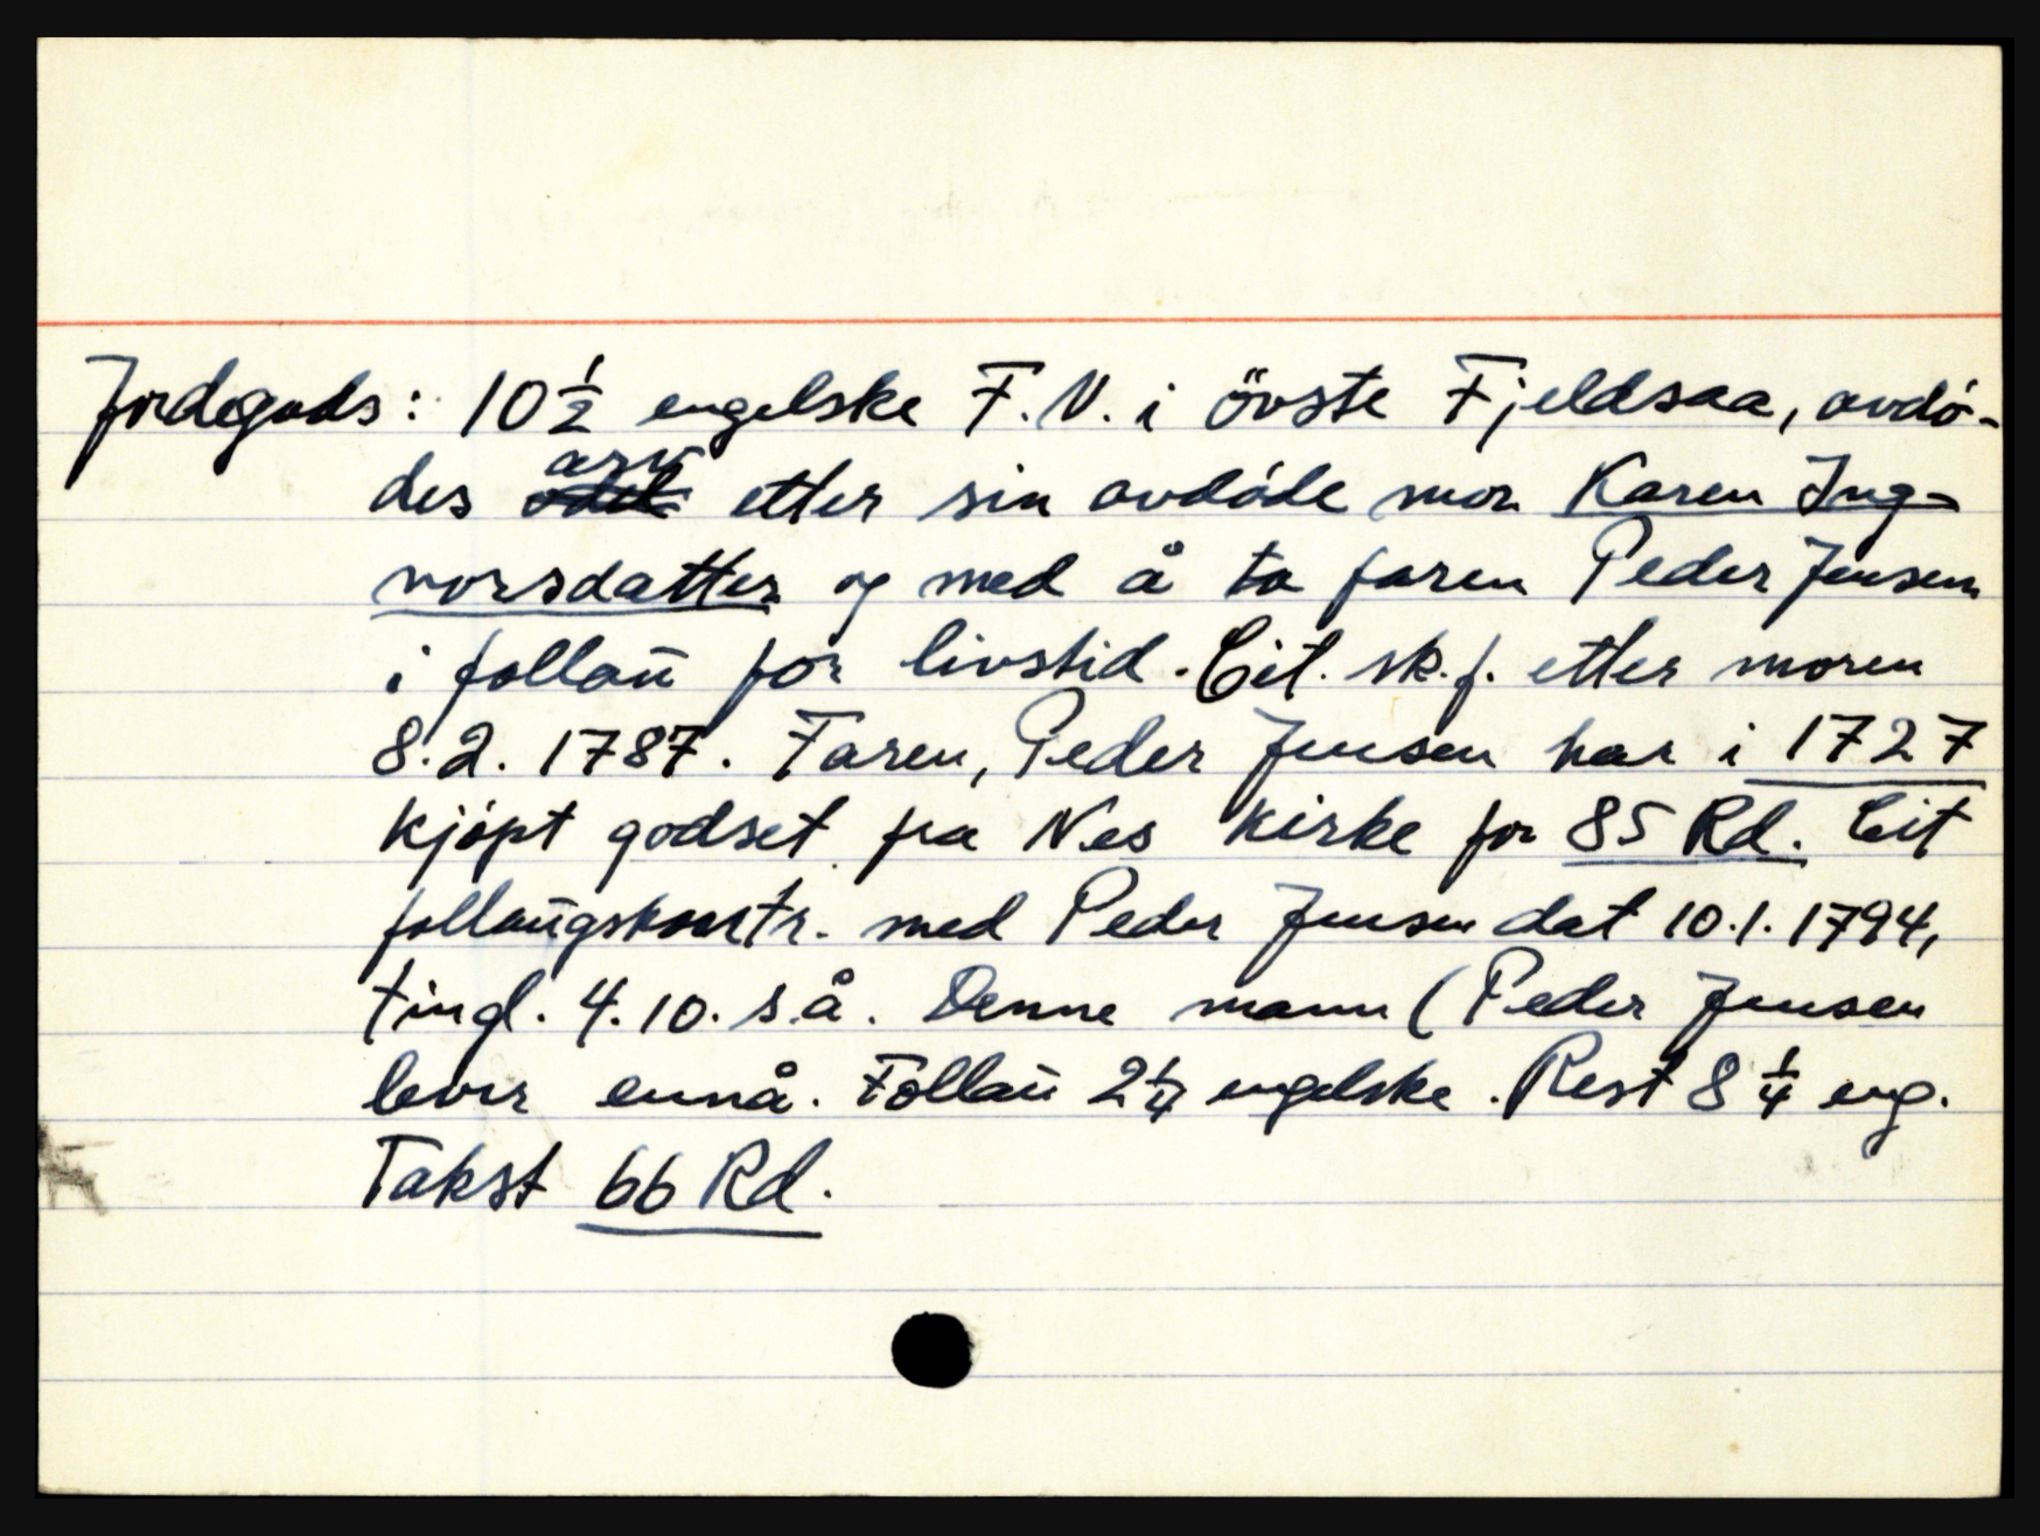 Jordegods: 10 1/2 engelske F.N. i övste Fjeldsaa, avdö-
des ~~odel~~ arv etter sin avdöde mor Karen Ing-
vorsdatter og med å ta faren Peder Jensen
i follaū för livstid. Cit. sk.f. etter moren
8.2. 1787. Faren, Peder Jensen har i 1727
kjöpt godset fra Nes kirke for 85 Rd. Cit
follaūgskontr. med Peder Jensen dat 10.1.1794,
tingl. 4.10. s.å. Denne mann (Peder Jensen
lever ennå. Follaū 2 1/4 engelske. Rest 8 1/4 eng.
Takst 66 Rd.